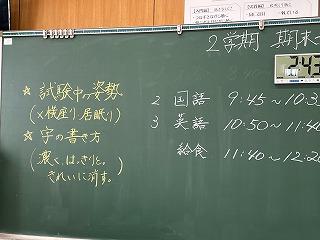 2学期 期末
☆ 試験中の姿勢
(×横座り、居眠り)
☆ 字の書き方
(濃く、はっきりと。
きれいに消す。)
2 国語 9:45～10:3
3 英語 10:50～11:40
給食 11:40～12:20